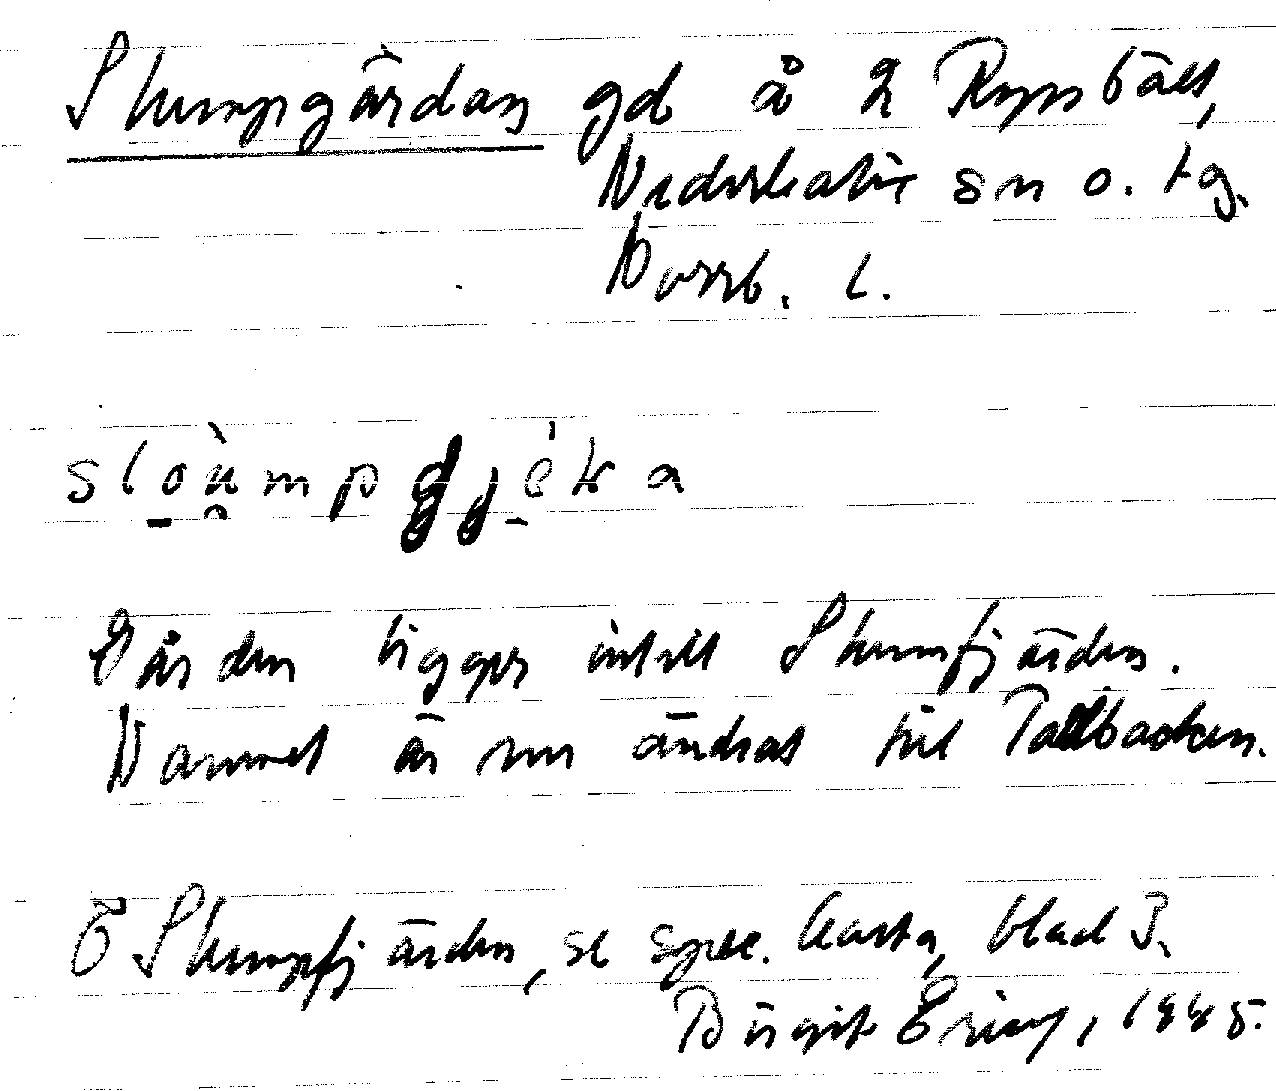 Slumpgärdan gd å 2 Rynbäck,
Nederkalix sn o. tg.
Norrb. l.
sloumpgjèka
Gården ligger intill Slumpfjärden.
Namnet är nu ändrat till Tallbacken.
Slumpfjärden, se spec. karta, blad 3.
Birgit 1945.